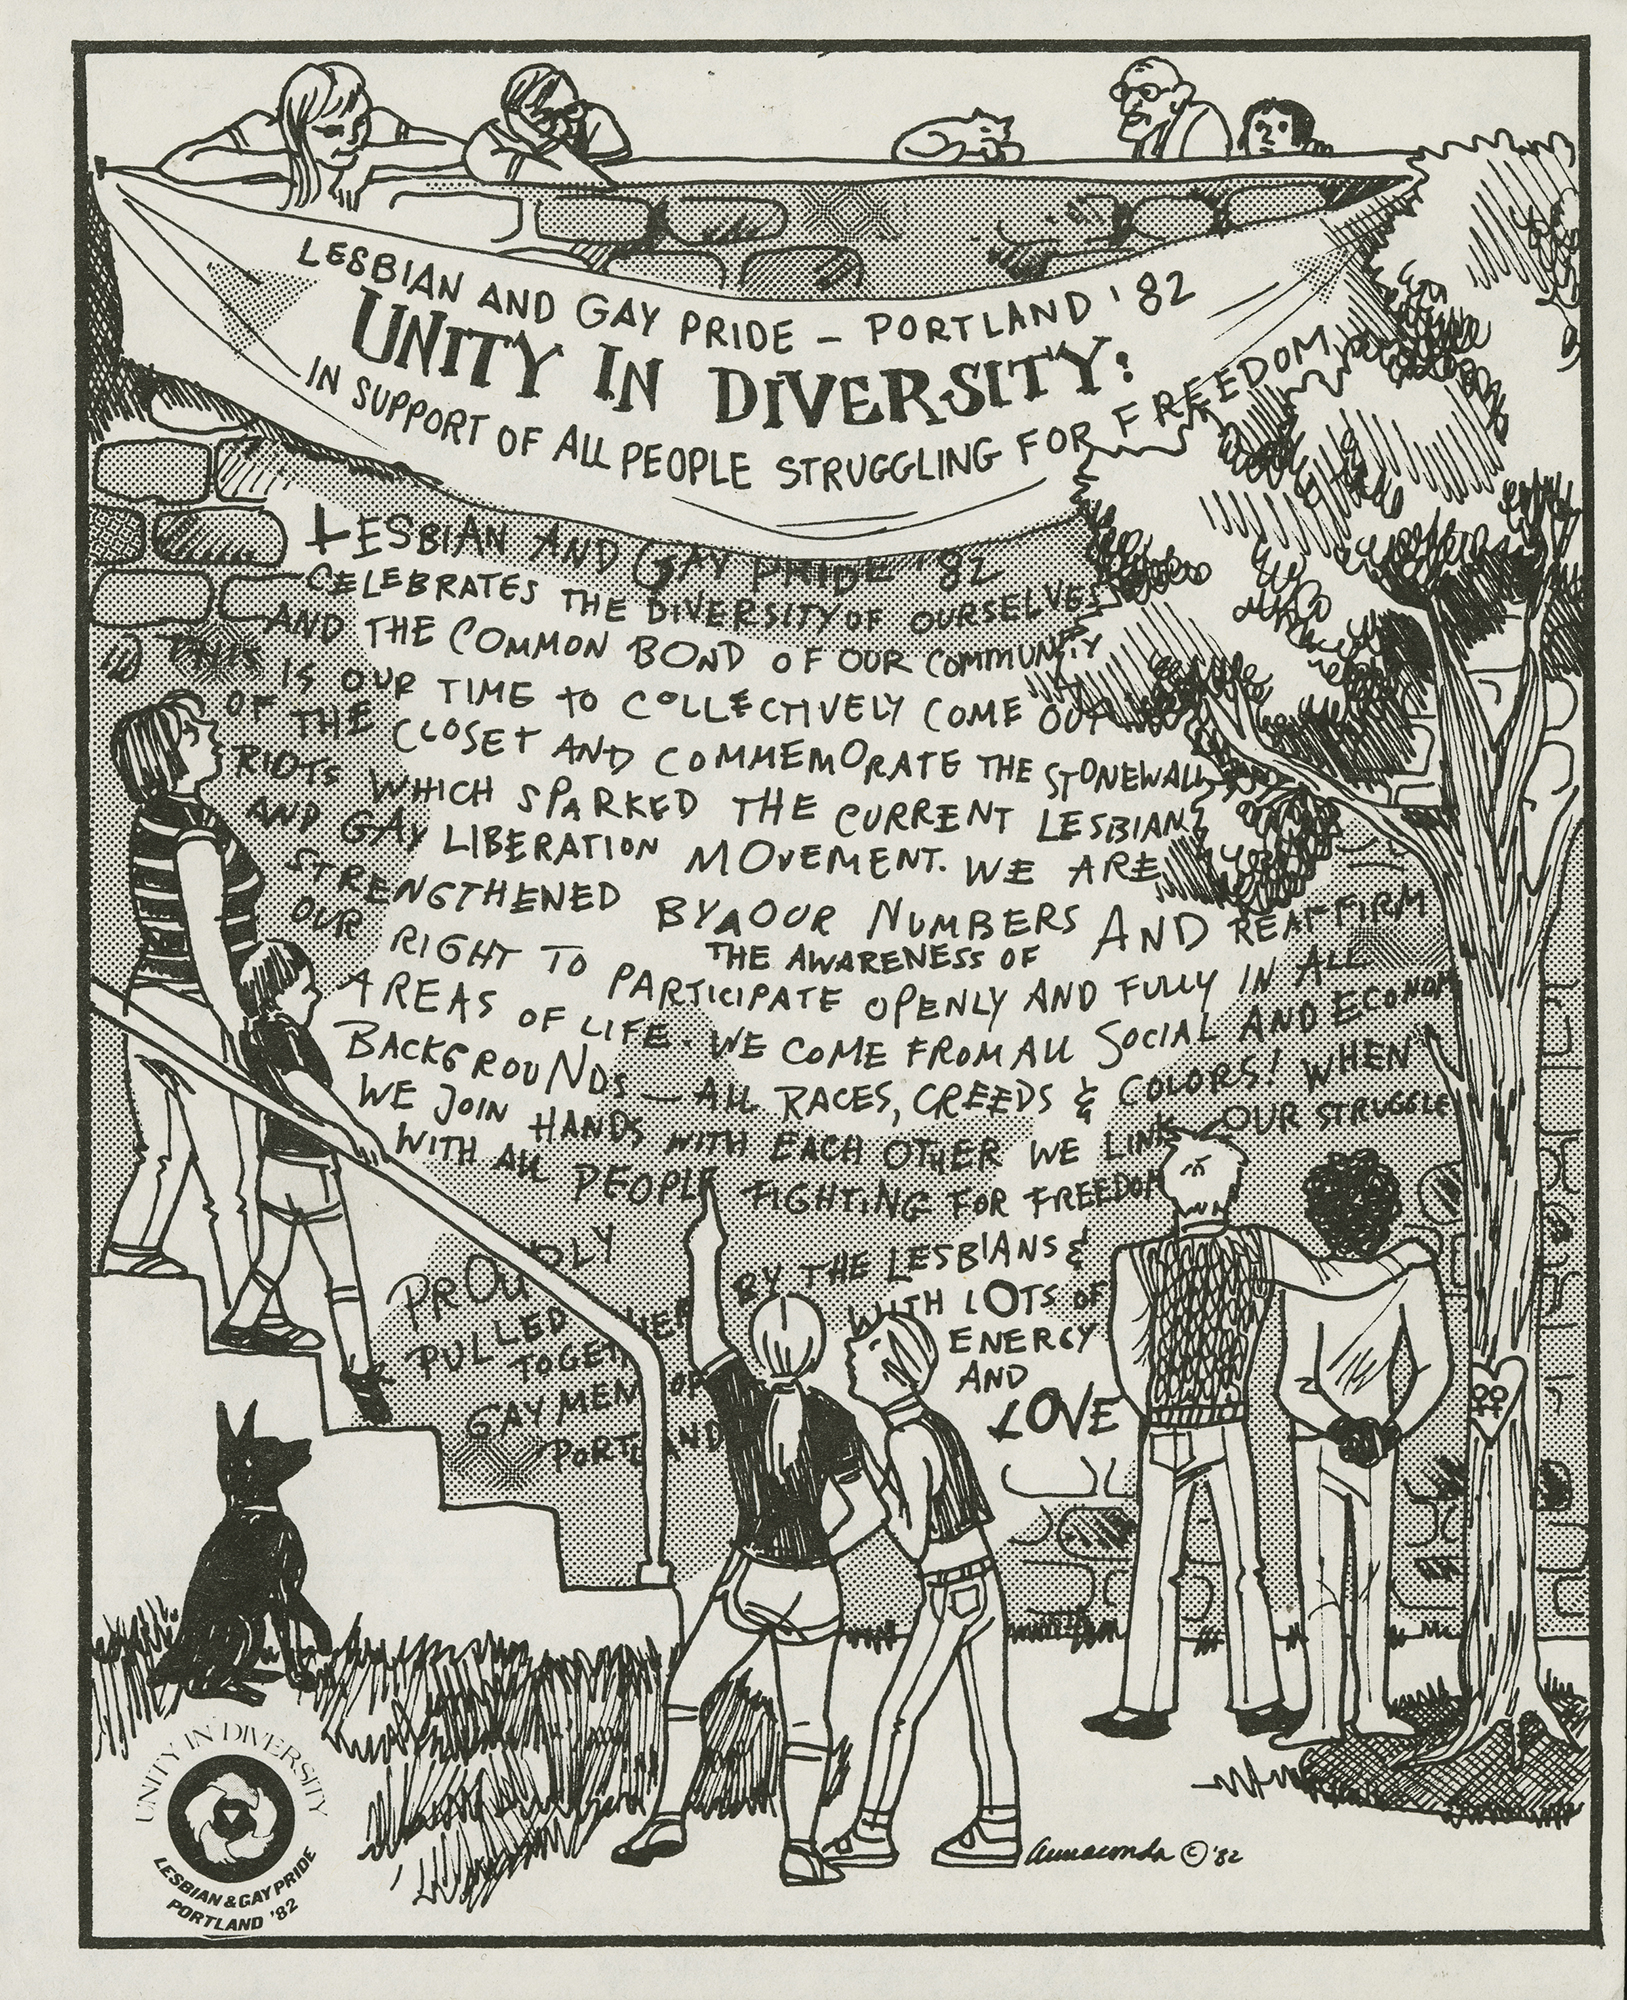 LESBIAN AND GAY PRIDE – PORTLAND '82
UNITY IN DIVERSITY:
IN SUPPORT OF ALL PEOPLE STRUGGLING FOR FREEDOM
LESBIAN AND GAY PRIDE '82
CELEBRATES THE DIVERSITY OF OURSELVES
AND THE COMMON BOND OF OUR COMMUNITY
THIS IS OUR TIME TO COLLECTIVELY COME OUT
OF THE CLOSET AND COMMEMORATE THE STONEWALL
RIOTS WHICH SPARKED THE CURRENT LESBIAN
AND GAY LIBERATION MOVEMENT. WE ARE
STRENGTHENED BY THE AWARENESS OF OUR NUMBERS AND REAFFIRM
OUR RIGHT TO PARTICIPATE OPENLY AND FULLY IN ALL
AREAS OF LIFE. WE COME FROM ALL SOCIAL AND ECONOM
BACKGROUNDS — ALL RACES, CREEDS & COLORS! WHEN
WE JOIN HANDS WITH EACH OTHER WE LINK OUR STRUGGLE
WITH ALL PEOPLE FIGHTING FOR FREEDOM
PROUDLY
PULLED TOGETHER BY THE LESBIANS &
GAY MEN OF PORTLAND WITH LOTS OF
ENERGY
AND
LOVE
UNITY IN DIVERSITY
LESBIAN & GAY PRIDE
PORTLAND '82
annaconda © '82